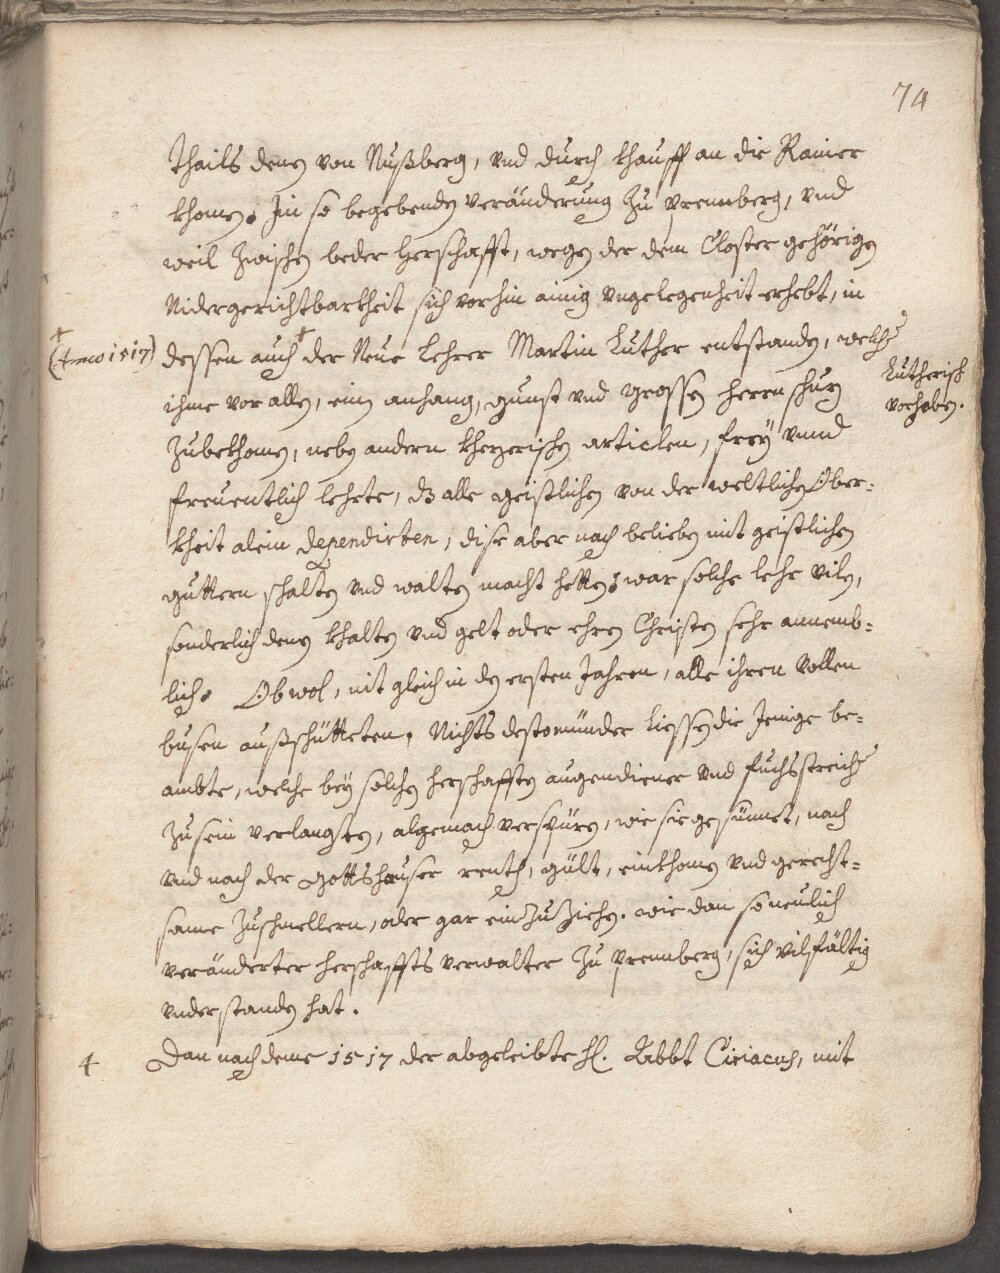 74
thails denen von Nußberg, vnd durch khauff an die Rainer
khomen. In so begebenden veränderung zu prennberg, vnd
weil zwischen beder herschafft, wegen der dem Closter gehörigen
Nidergerichtbarkheit sich vorhin ainig vngelegenheit erhebt, in
(Anno 1517) dessen auch der Neue Lehrer Martin Luther entstanden, welcher
Lutherisch
vorhaben.
ihme vor allen, ein anhang, gunst vnd grossen herrn schuz
zubekhomen, neben andern khezerischen articlen, frey vnnd
freuentlich lehrte, dz alle geistlichen von der weltlichen Ober-
kheit alein dependirten, dise aber nach belieben mit geistlichen
guttern schalten vnd walten macht hetten, war solche lehr vilen,
sonderlich denen khalten vnd gelt oder ehren Christen sehr annemb-
lich. Obwol, nit gleich in den ersten Jahren, alle ihren vollen
busen außschütteten, Nichts destomünder liessen die Jenige be-
ambte, welche bey solchen herschafften augendiener vnd fuchsstreicher
zu sein verlangten, algemach verspüren, wie sie gesünnet, nach
vnd nach der gottshäuser renth, gült, einkhomen vnd gerecht-
same zuschmellern, oder gar ein zu ziehen. wie dan so neulich
veränderter herschaffts verwalter zu prennberg, sich vilfältig
vnderstanden hat.
4 Dan nach deme 1517 der abgeleibte H. Abbt Ciriacus, mit